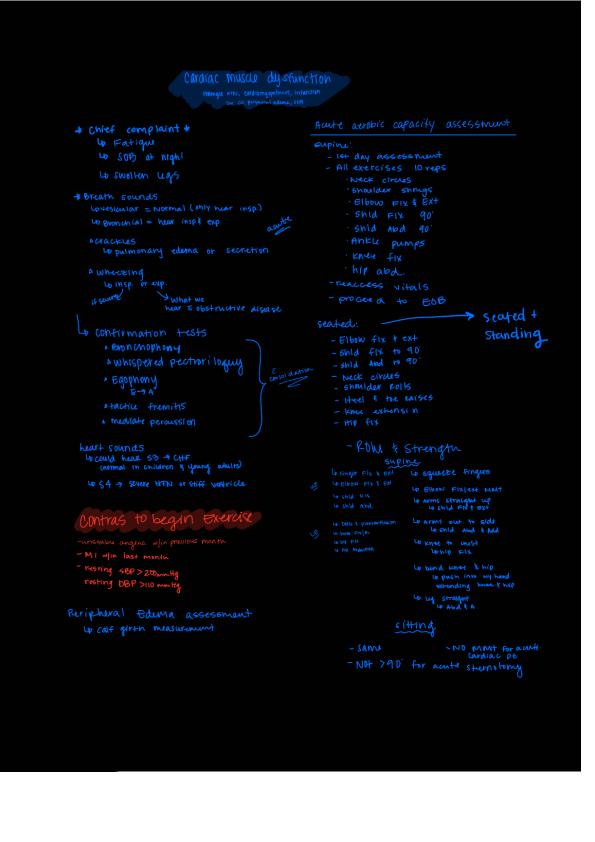 Cardiac muscle dysfunction
* Chief complaint *
↳ Fatigue
↳ SOB at night
↳ swollen legs
* Breath sounds
↳ vesicular = Normal (only hear insp.)
↳ Bronchial = hear insp & exp.
acute
* crackles
↳ pulmonary edema or secretion
* wheezing
↳ insp. or exp.
if severe
what we
hear = obstructive disease
↳ confirmation tests
* Bronchophony
* whispered pectoriloquy
* Egophony
E → A
* tactile fremitis
* mediate percussion
c consolidation
heart sounds
↳ could hear S3 → CHF
(normal in children & young adults)
↳ S4 → severe HTN or stiff ventricle
Contras to begin Exercise
- unstable angina w/in previous month
- MI w/in last month
- resting SBP > 200 mmHg
resting DBP > 110 mmHg
Peripheral Edema assessment
↳ calf girth measurement
Acute aerobic capacity assessment
supine:
- 1st day assessment
- All exercises 10 reps
· Neck circles
· shoulder shrugs
· Elbow Flx & Ext
· Shld Flx 90°
· Shld Abd 90°
· Ankle pumps
· knee flx
· hip abd.
- reaccess vitals
- proceed to EOB
seated:
→ seated +
standing
- Elbow flx & ext
- Shld flx to 90°
- Shld Abd to 90°
- Neck circles
- shoulder rolls
- Heel & toe raises
- knee extension
- Hip flx
- ROM & strength
supine
↳ finger Flx & Ext
↳ Elbow Flx & Ext
↳ shld flx
↳ shld abd.
↳ squeeze fingers
↳ Elbow Flx/ext MMT
↳ arms straight up
↳ shld Flx & ext
↳ arms out to side
↳ shld abd & Add
↳ knee to chest
↳ hip flx
↳ bend knee & hip
↳ push into my hand
extending knee & hip
↳ leg straight
↳ Abd & A
sitting
- same
- NO MMT for acute
cardiac pt
- NOT > 90° for acute sternotomy